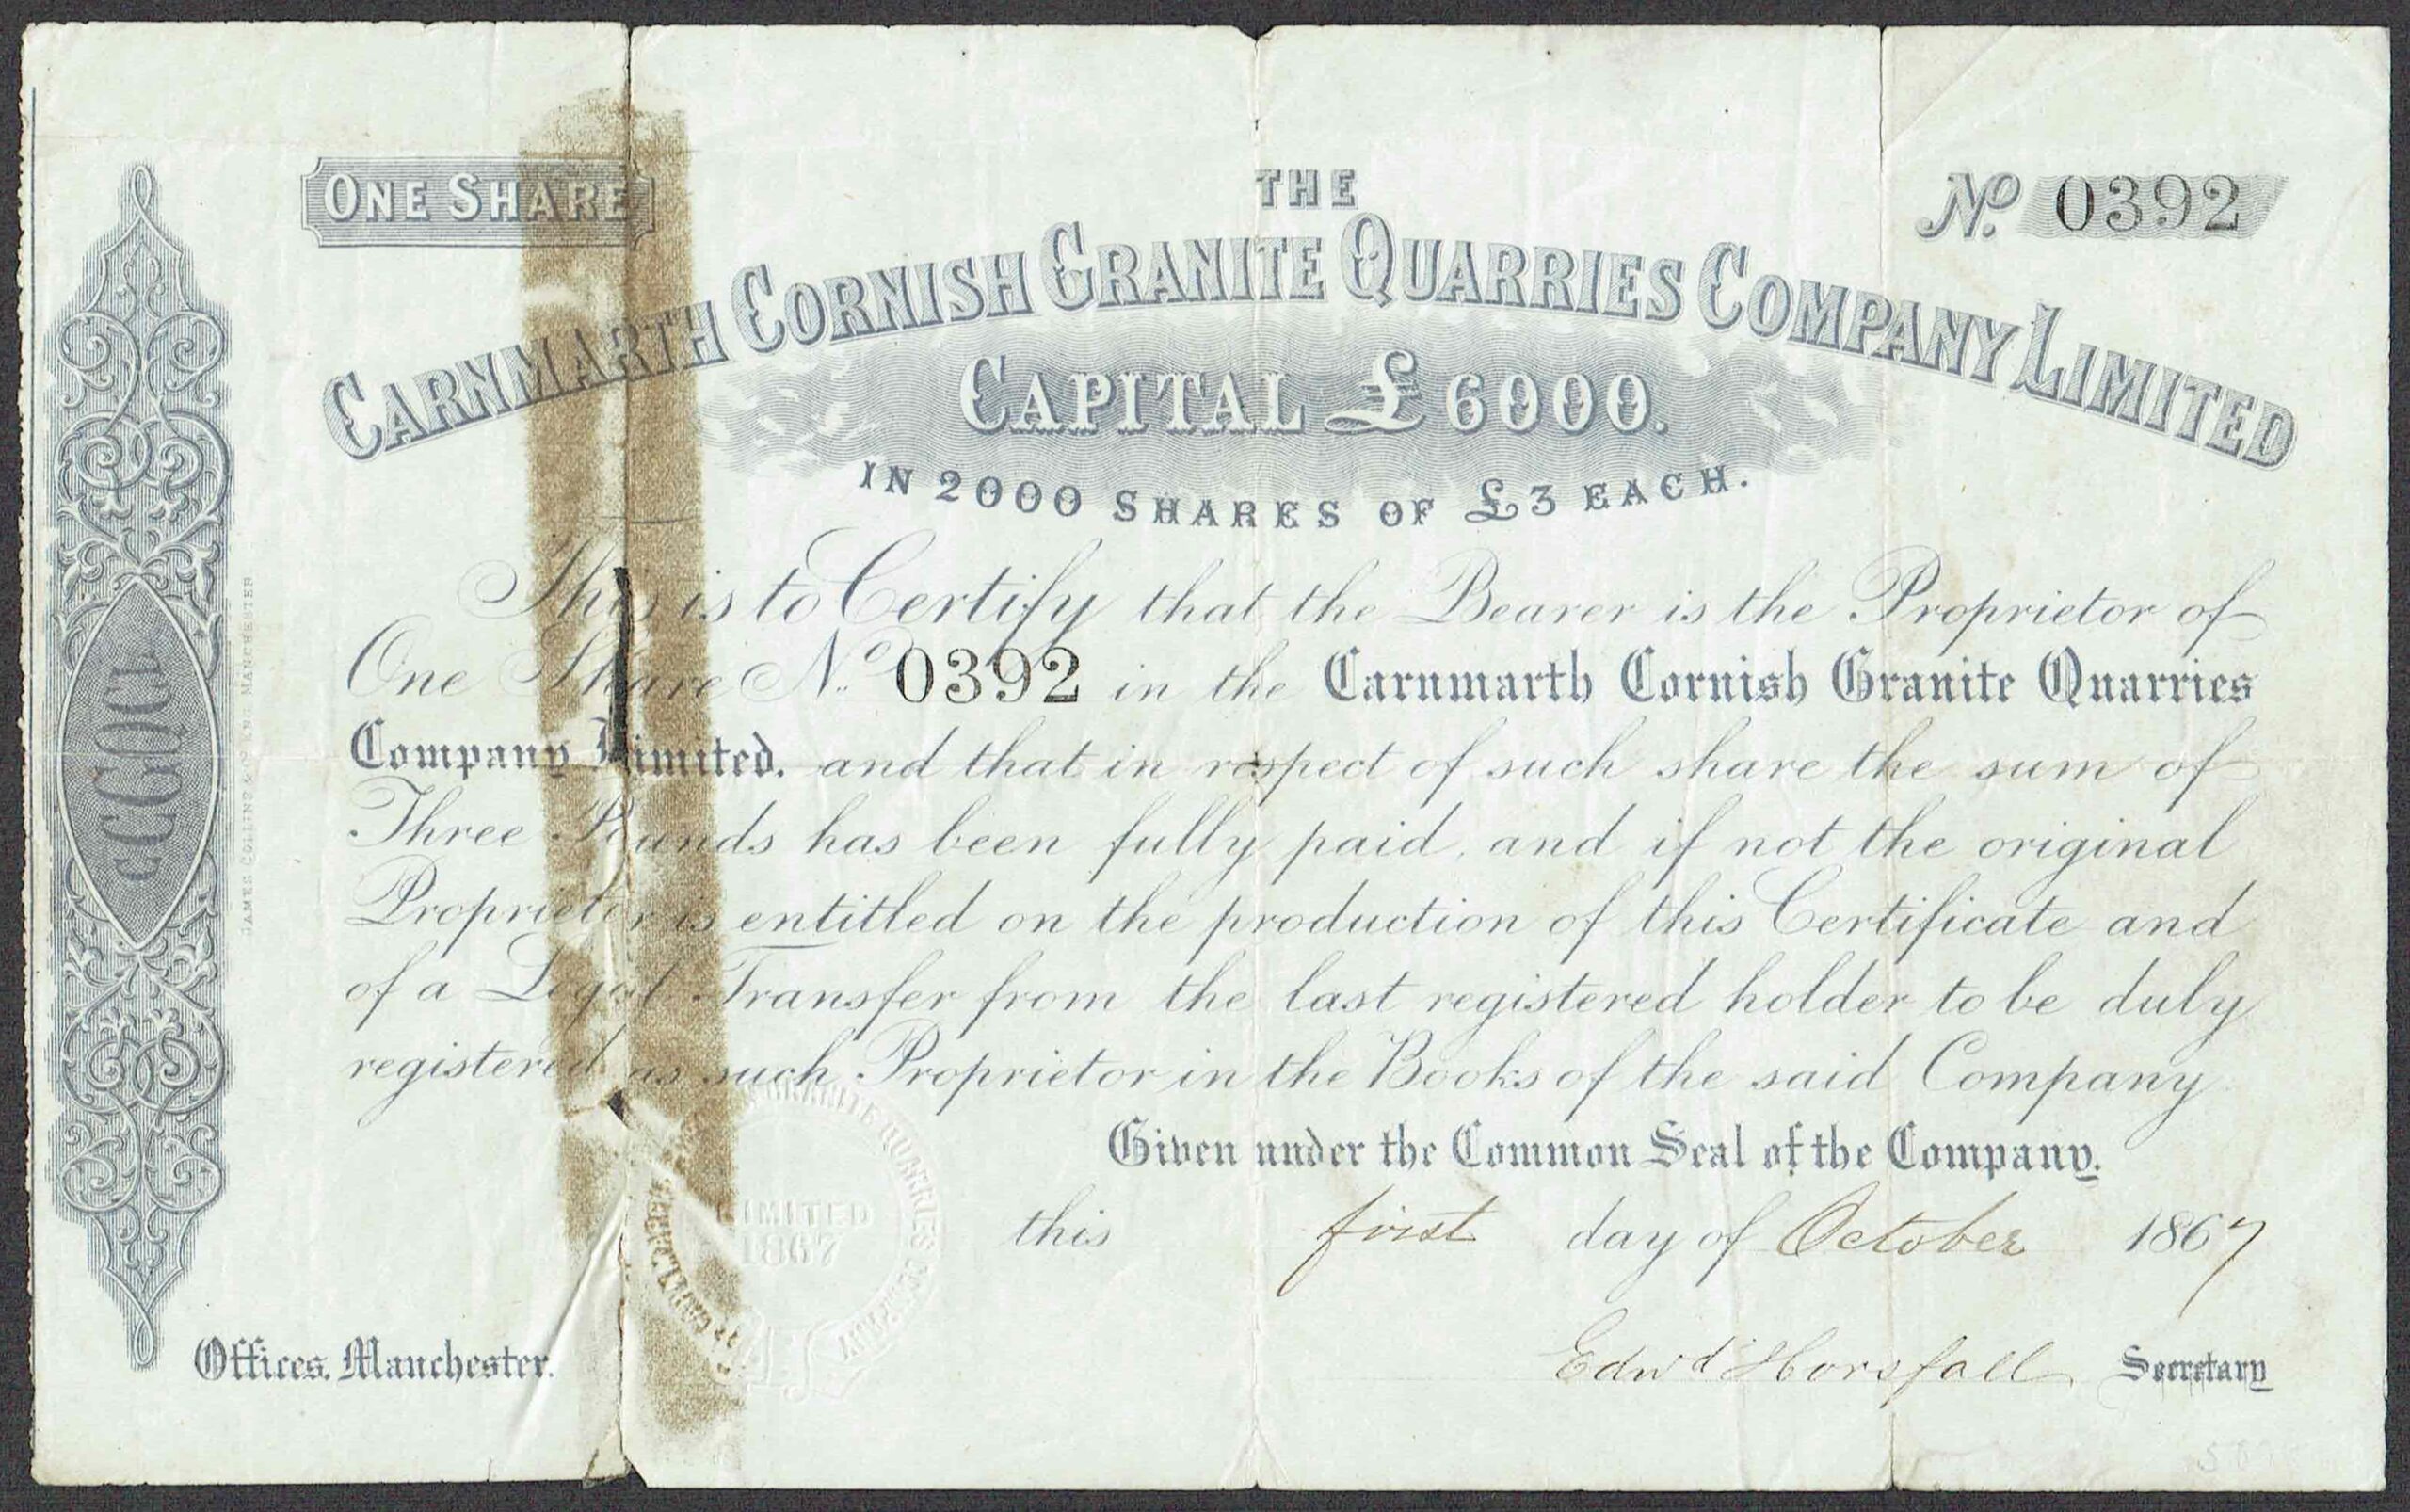 ONE SHARE
THE
No. 0392
CARNMARTH CORNISH GRANITE QUARRIES COMPANY LIMITED
CAPITAL £6000.
IN 2000 SHARES OF £3 EACH.
This is to Certify that the Bearer is the Proprietor of
One Share No. 0392 in the Carnmarth Cornish Granite Quarries
Company Limited, and that in respect of such share the sum of
Three Pounds has been fully paid, and if not the original
Proprietor is entitled on the production of this Certificate and
of a Legal Transfer from the last registered holder to be duly
registered as such Proprietor in the Books of the said Company
Given under the Common Seal of the Company.
this first day of October 1867
Edwd Horsfall Secretary
Offices, Manchester.
CCGQCL
JAMES COLLINS & Co MANCHESTER
GRANITE QUARRIES COMPANY
LIMITED
1867